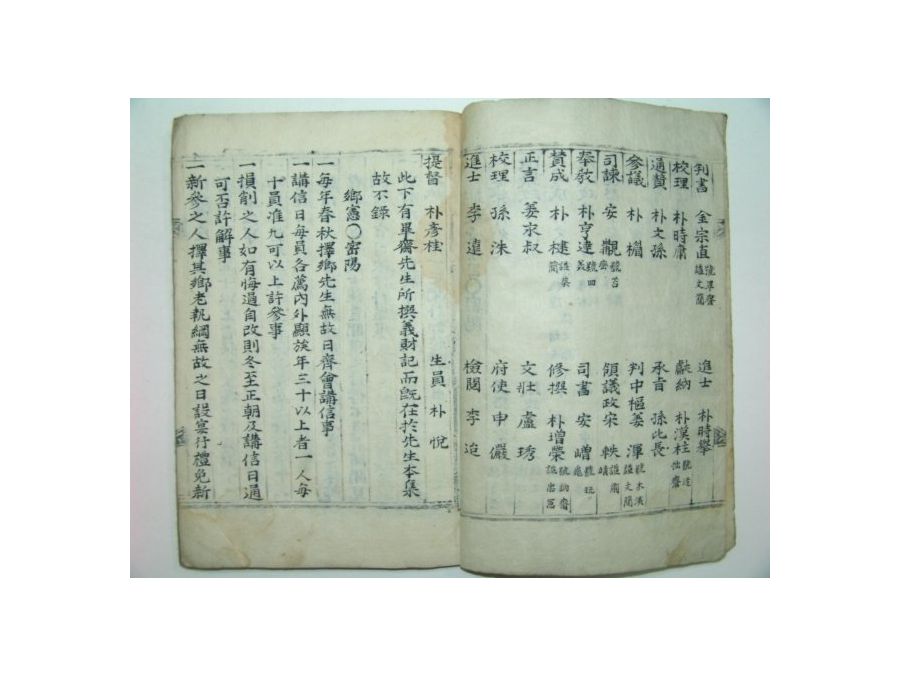 判書 金宗直 號畢齋 謚文簡 進士 朴時擧
校理 朴時庸 獻納 朴漢柱 號迂拙齋
通贊 朴文孫 承旨 孫比長
參議 朴楣 判中樞姜渾 號木溪 謚文簡
司諫 安觀 領議政宋軼 謚肅靖
擧敎 朴亨達 司書 安嶒 號玩龜
贊成 朴楗 謚恭簡 修撰 朴增榮 號訥齋
正言 姜永叔 文壯 盧琇
校理 孫洙 府使 申儼
進士 李遠 檢閱 李迨
提督 朴彦桂 生員 朴悅
此下有畢齋先生所撰義財記而旣在於先生本集
故不錄
鄕憲○密陽
一每年春秋擇鄕先生無故日齊會講信事
一講信日每員各薦內外顯族年三十以上者一人每
十員准九可以上許參事
一損削之人如有悔過自改則冬至正朝及講信日通
可否許解事
一新參之人擇其鄕老執綱無故之日設宴行禮免新